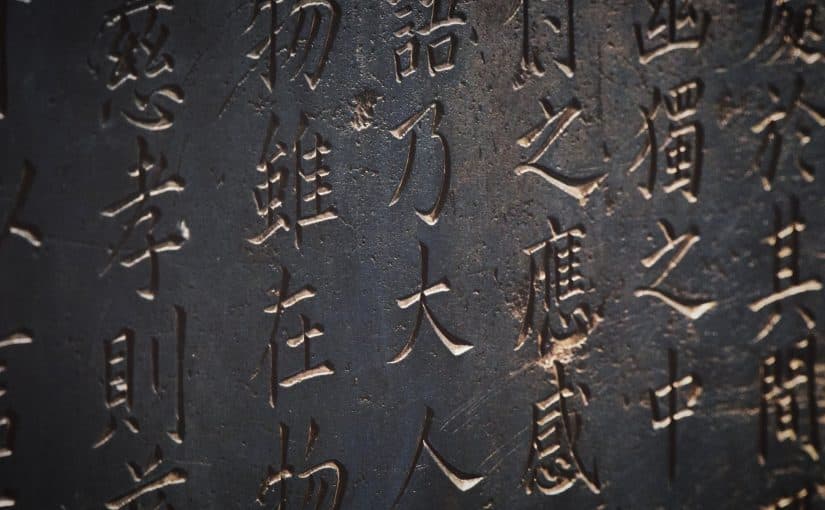 處於其間
幽獨之中
之應感
語乃大人
物雖在物
慈孝則
以